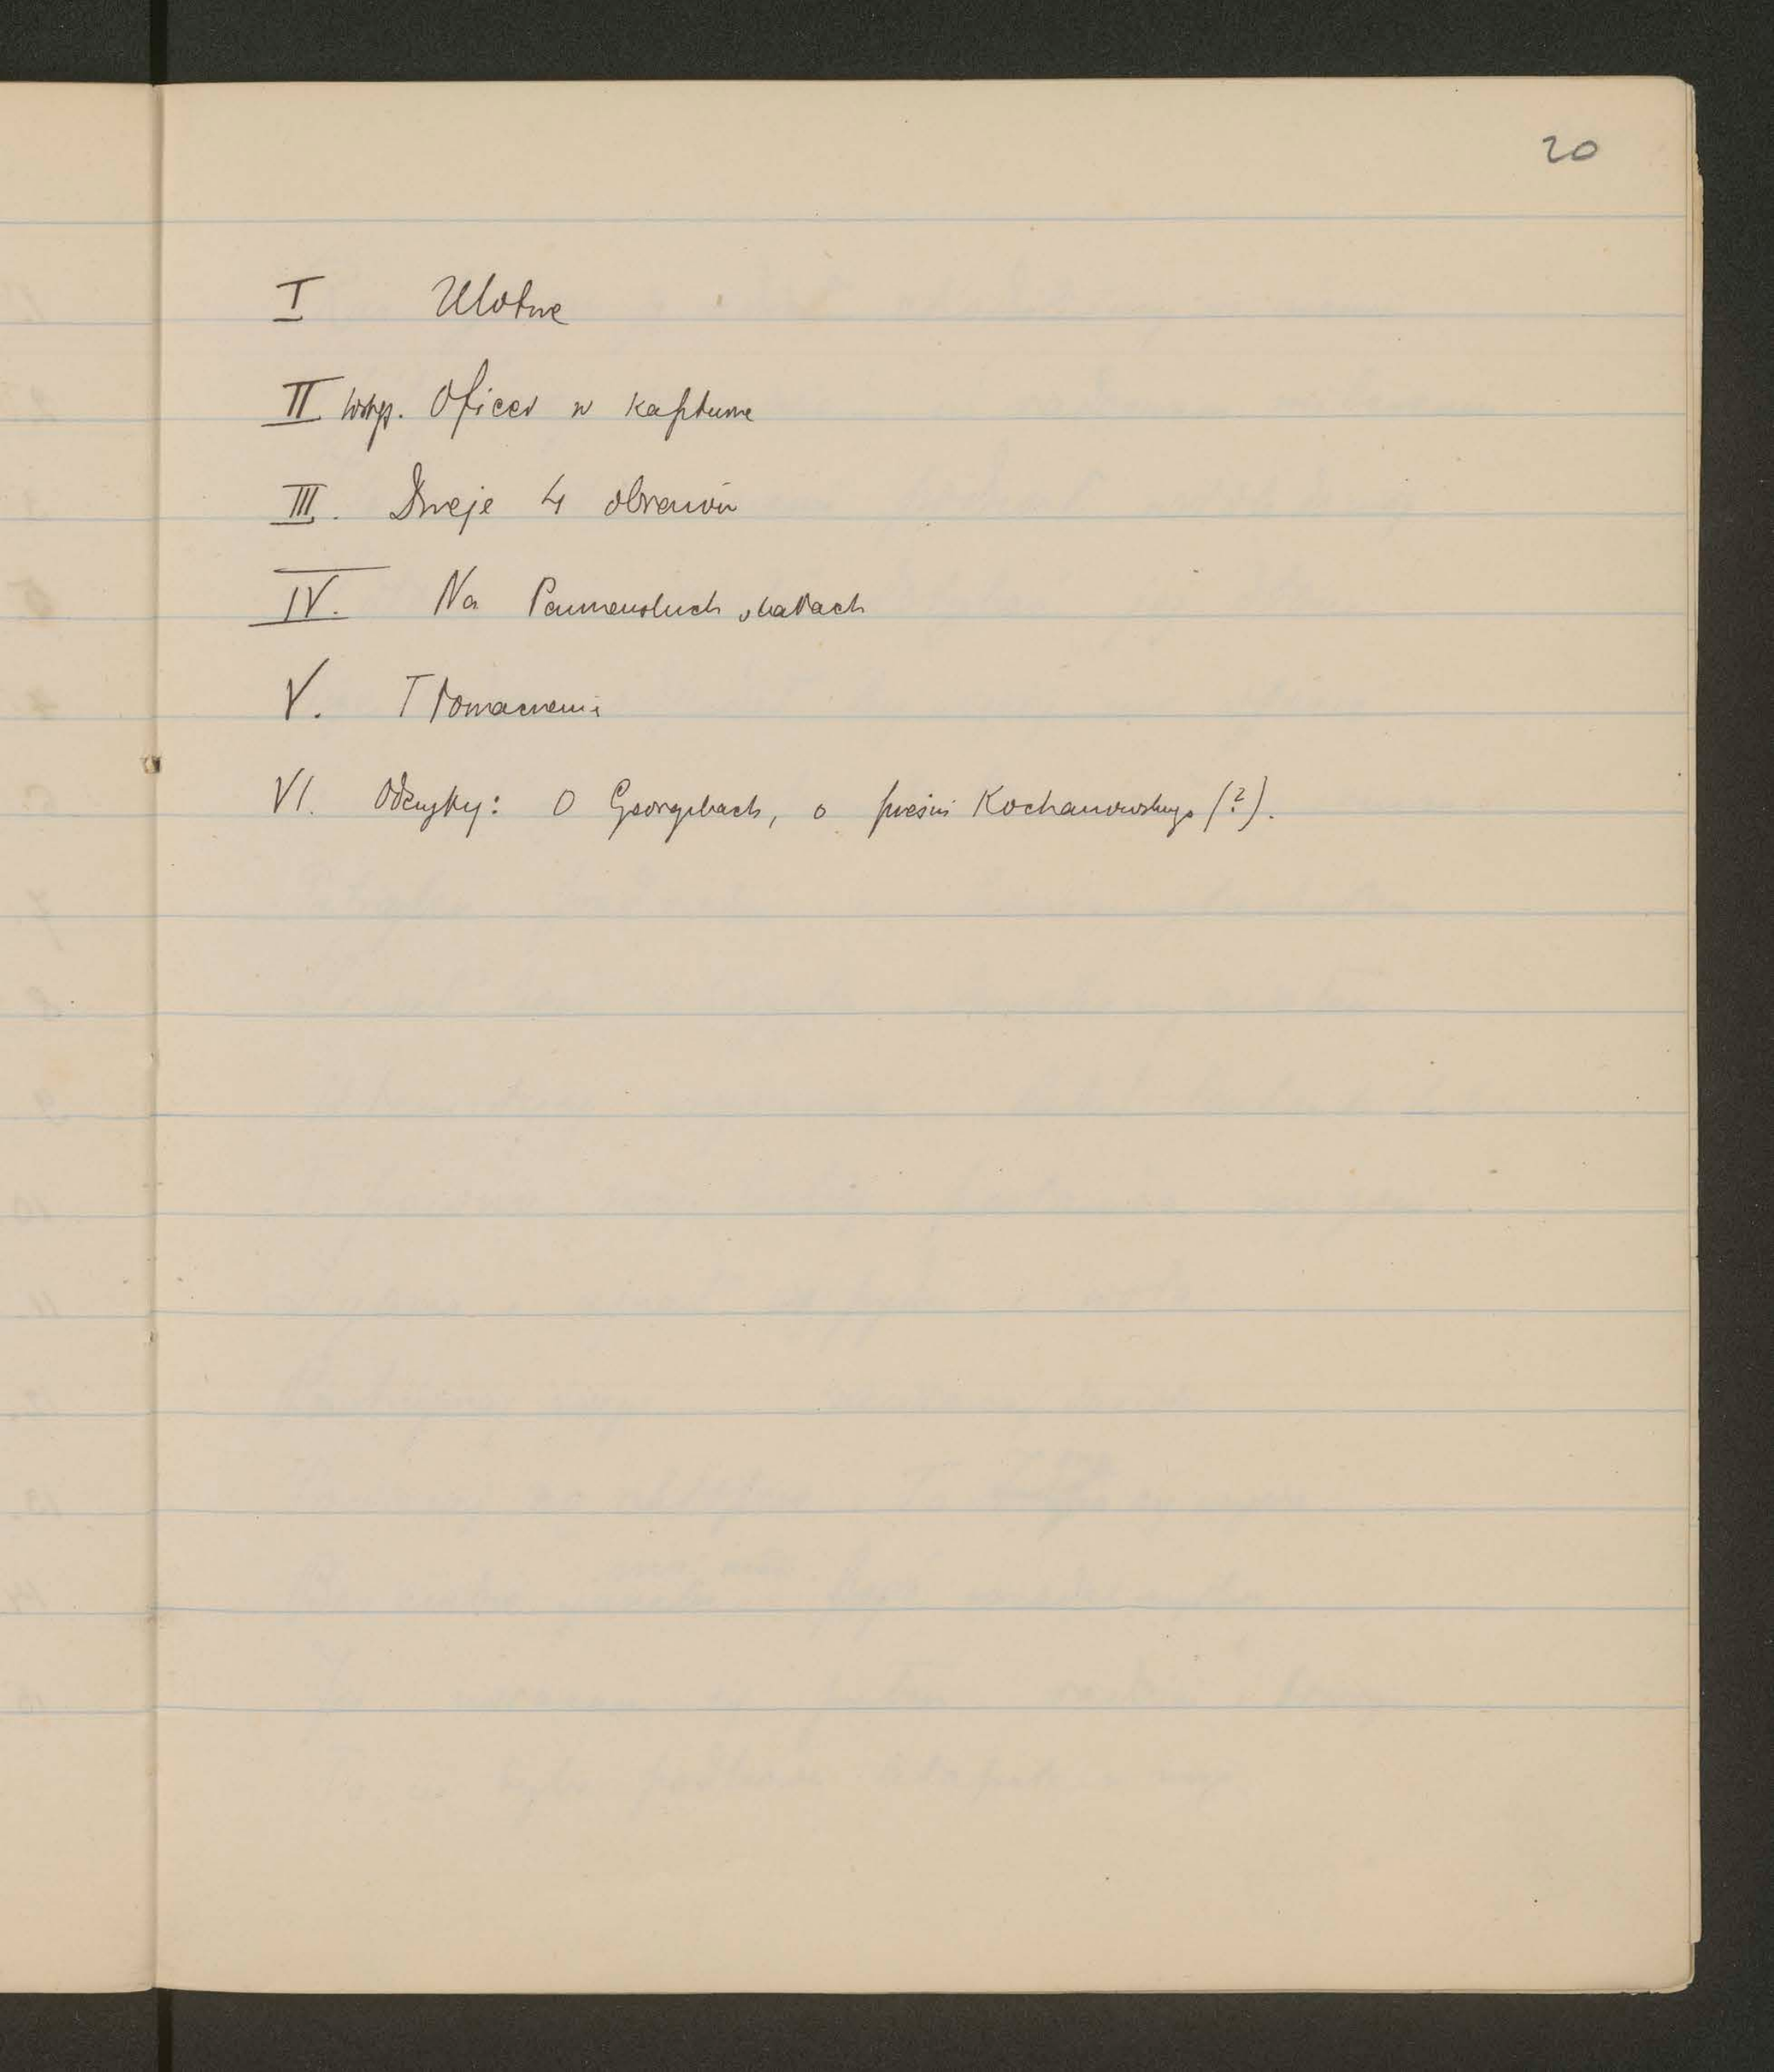 20
I Ulotne
II Wstęp. Oficer w kapturze
III. Dzieje 4 obrazów
IV. Na Parnaskich skałach
V. Tłomaczenia
VI. Odczyty: O Georgikach, o pieśni Kochanowskiego (?).